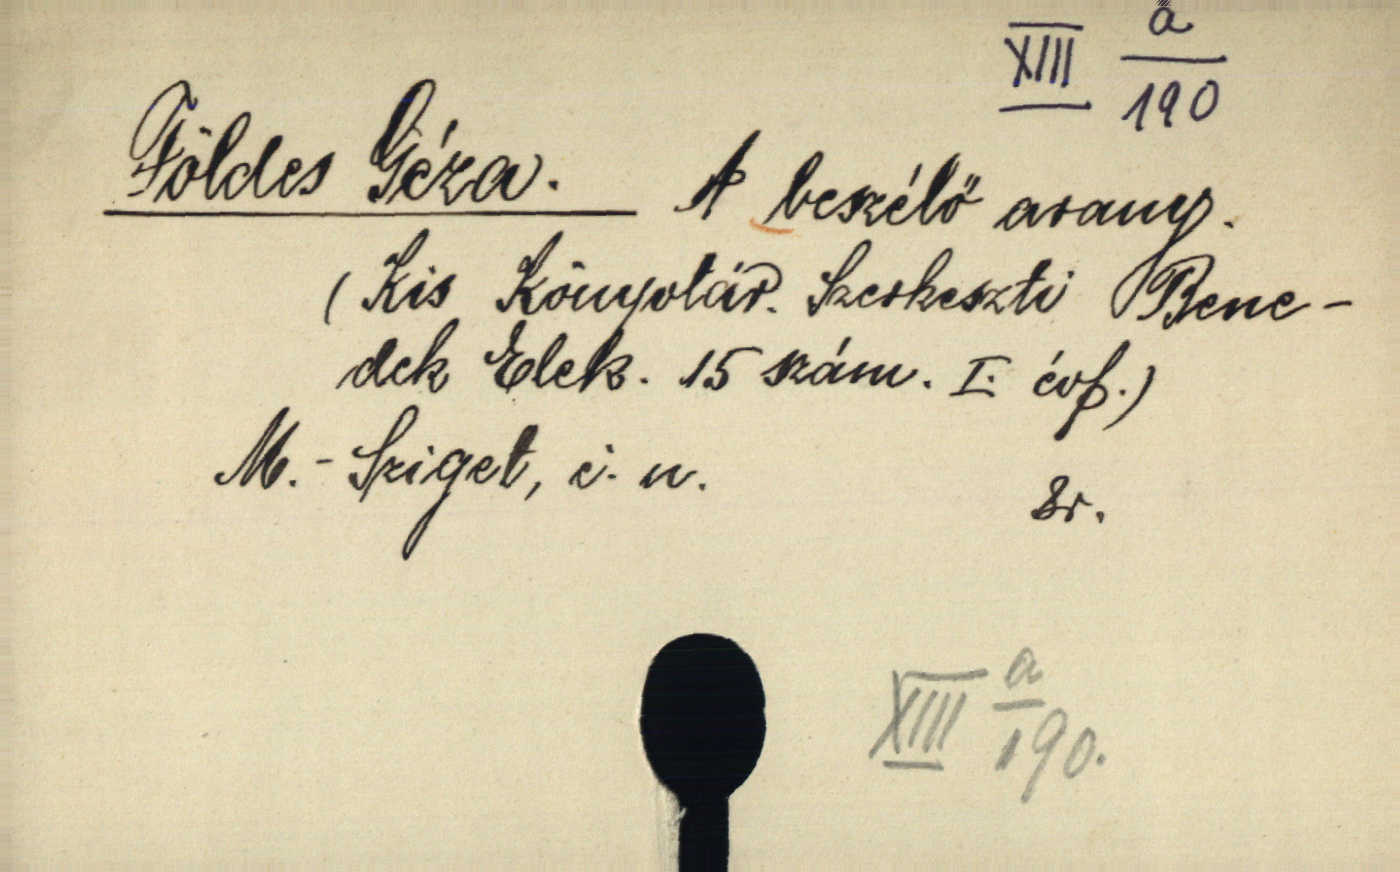 XIII a/190
Földes Géza. A beszélő arany.
(Kis Könyvtár. Szerkeszti Bene-
dek Elek. 15 szám. I. évf.)
M.-Sziget, é. n.
8r.
XIII a/190.